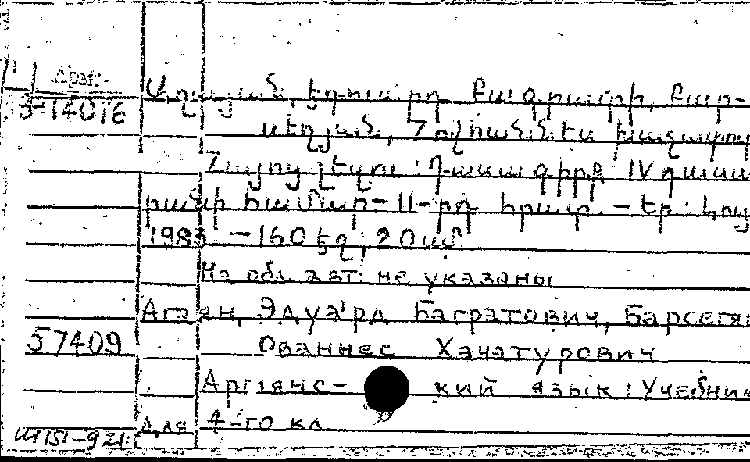 Арм.
3-14016
Աղայան, Էդուարդ Բագրատի, Բար-
սեղյան, Հովհաննես
Հայոց լեզու: Դասագիրք IV դասա-
րանի համար- 11-րդ հրատ. -Եր.:
1983 -160 էջ; 20սմ
На обл. авт. не указаны
Агаян, Эдуард Багратович,
57409
Ованнес Хачатурович
Армянс- кий язык: Учебник
для 4-го кл